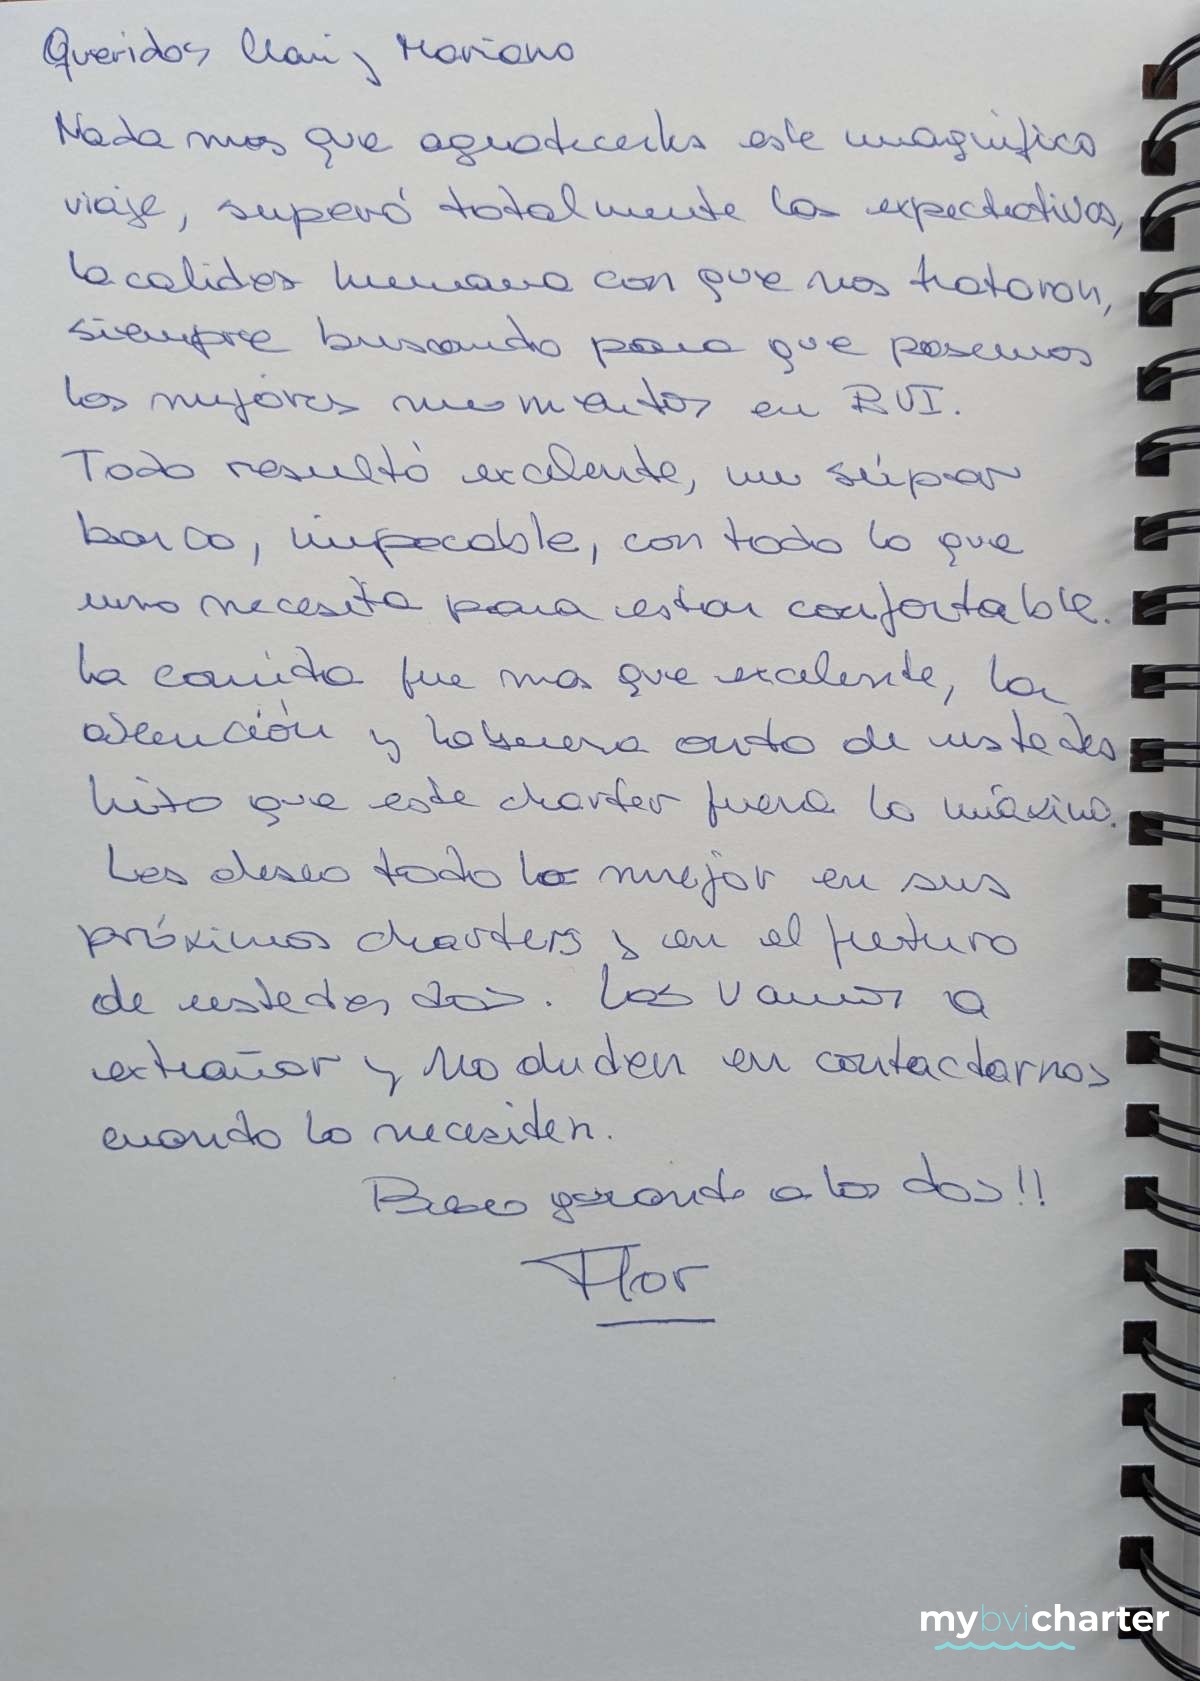 Queridos Mari y Mariano
Nada mas que agradecerles este magnifico
viaje, superó totalmente las expectativas,
la calidez humana con que nos trataron,
siempre buscando para que pasemos
los mejores momentos en BVI.
Todo resultó excelente, un súper
barco, impecable, con todo lo que
uno necesita para estar confortable.
La comida fue mas que excelente, la
atención y la buena onda de ustedes
hizo que este charter fuera lo máximo.
Les deseo todo lo mejor en sus
próximos charters y en el futuro
de ustedes dos. Los vamos a
extrañar y no duden en contactarnos
cuando lo necesiten.
Beso grande a los dos!!
Flor
mybvicharter